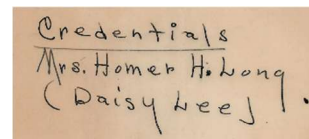 Credentials
Mrs. Homer H. Long
(Daisy Lee) .